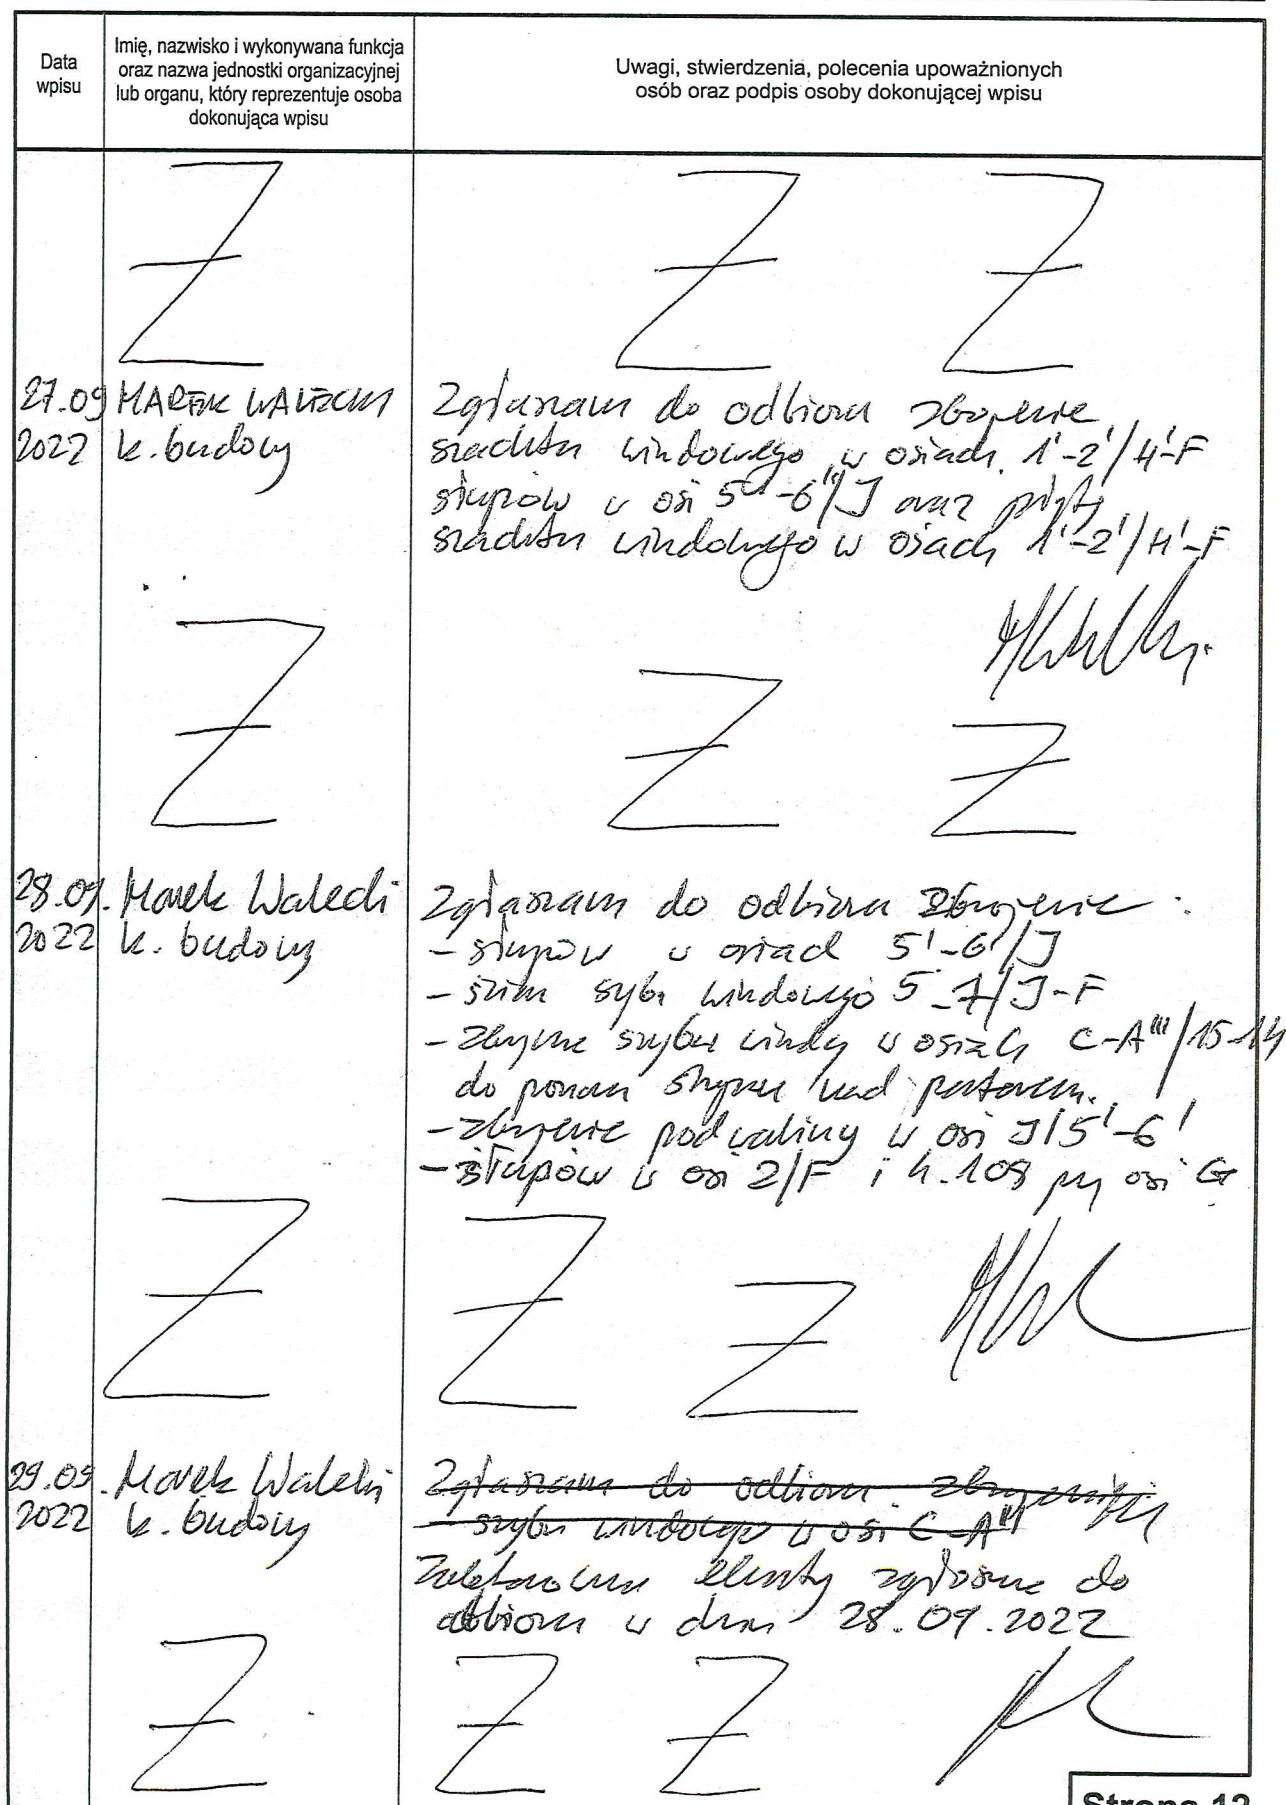 Data
wpisu
Imię, nazwisko i wykonywana funkcja
oraz nazwa jednostki organizacyjnej
lub organu, który reprezentuje osoba
dokonująca wpisu
Uwagi, stwierdzenia, polecenia upoważnionych
osób oraz podpis osoby dokonującej wpisu
Z
Z Z
27.09
2022
MAREK WALECKI
k. budowy
Zgłaszam do odbioru zbrojenie
szachtu windowego w osiach 1'-2'/H'-F
słupów w osi 5'-6'/J oraz płyty
szachtu windowego w osiach 1'-2'/H'-F
Z
Z Z
28.09.
2022
Marek Walecki
k. budowy
Zgłaszam do odbioru zbrojenie :
- słupów w osiach 5'-6'/J
- ścian szybu windowego 5-7/J-F
- zbrojenie szybu windy w osiach C-A'''/15-14
do poziomu stropu nad parterem.
- zbrojenie podwaliny w osi J/5'-6'
- słupów w osi 2/F i 4.108 przy osi G
Z
Z Z
29.09.
2022
Marek Walecki
k. budowy
Zgłaszam do odbioru
szybu windowego w osi C-A'''
Zabetonowano elementy zgłoszone do
odbioru w dniu 28.09.2022
Z
Z Z
Strona 12